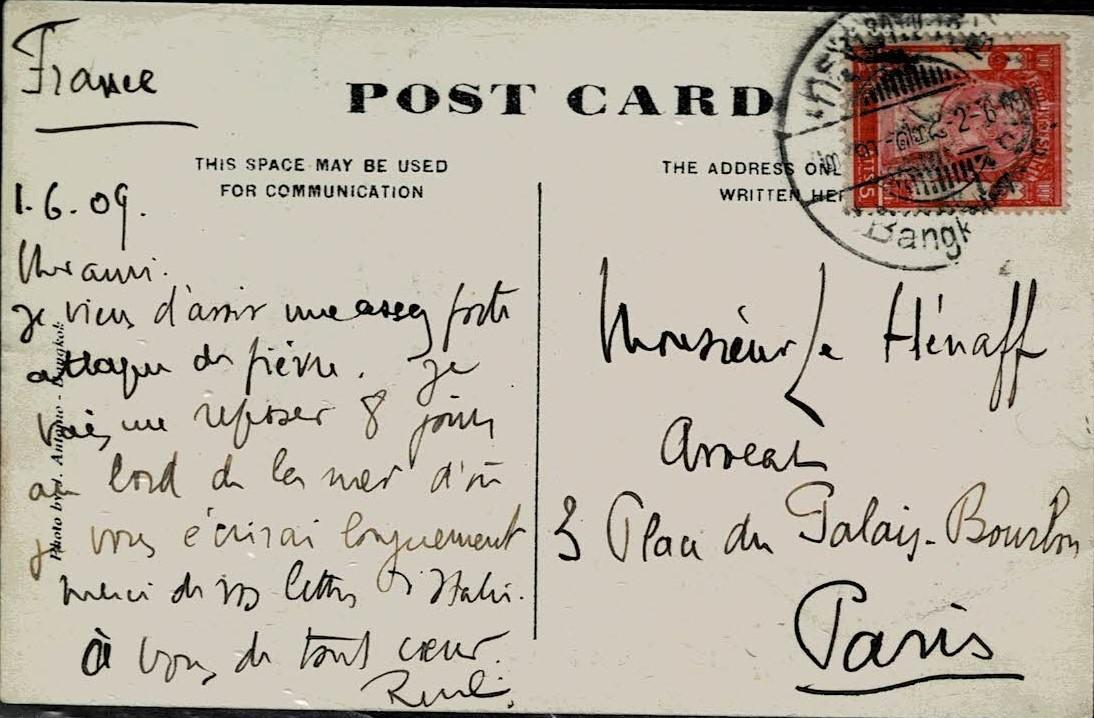 France
POST CARD
THIS SPACE MAY BE USED
FOR COMMUNICATION
THE ADDRESS ONL
WRITTEN HER
Bangk
1.6.09.
ami.
je viens d'avoir une assez forte
attaque de fièvre. Je
vais me reposer 8 jours
au bord de la mer d'où
je vous écrirai longuement
merci de vos lettres d'Italie.
à vous de tout cœur.
Photo by J. Antonio - Bangkok
Monsieur Le Hénaff
Avocat
3 Place du Palais-Bourbon
Paris